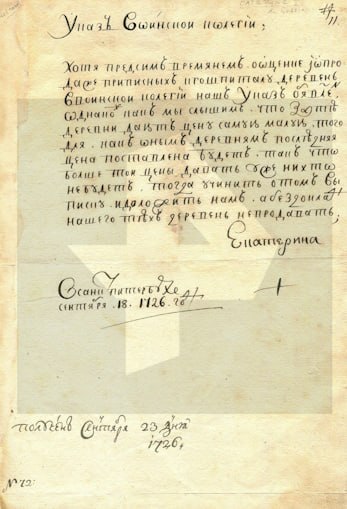 11.
Указъ Своинской колегіи;
Хотя предсимъ времянемъ, оѡщение ѡпро
даже приписныхъ кгошпиталу деревень
Своинскои колегіи нашъ Указъ
однако какъ мы слышимъ, что зоптѣ
деревни даютъ цену самую малую, того
для, какъ онымъ деревнямъ последняя
цена поставлена будетъ, такъ что
болше тои цены давать уже никто
небудетъ, тогда учинить отомъ вы
писку идоложить намъ, абездокла
нашего тѣхъ деревень непродавать;
Екатерина
Всанкпитербурхе
сентября .18. 1726. го
полученъ Сентября 23 дня
1726.
№ 72: